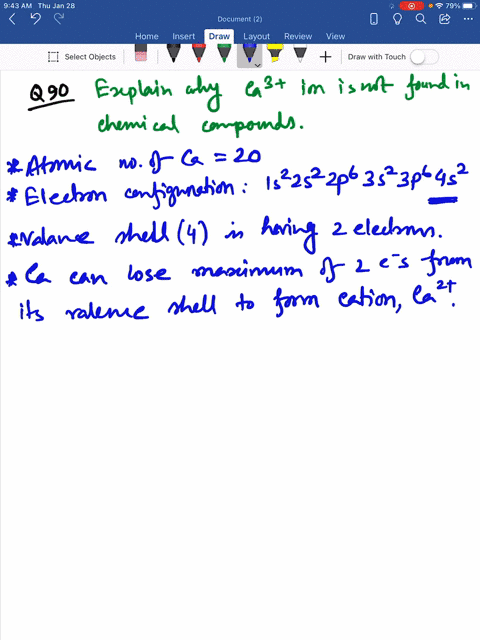 9:43 AM Thu Jan 28
79%
Document (2)
Home Insert Draw Layout Review View
Select Objects
Draw with Touch
Q90 Explain why Ca3+ ion is not found in
chemical compounds.
* Atomic no. of Ca = 20
* Electron configuration: 1s² 2s² 2p⁶ 3s² 3p⁶ 4s²
* Valance shell (4) is having 2 electrons.
* Ca can lose maximum of 2 e⁻s from
its valence shell to form cation, Ca²⁺.